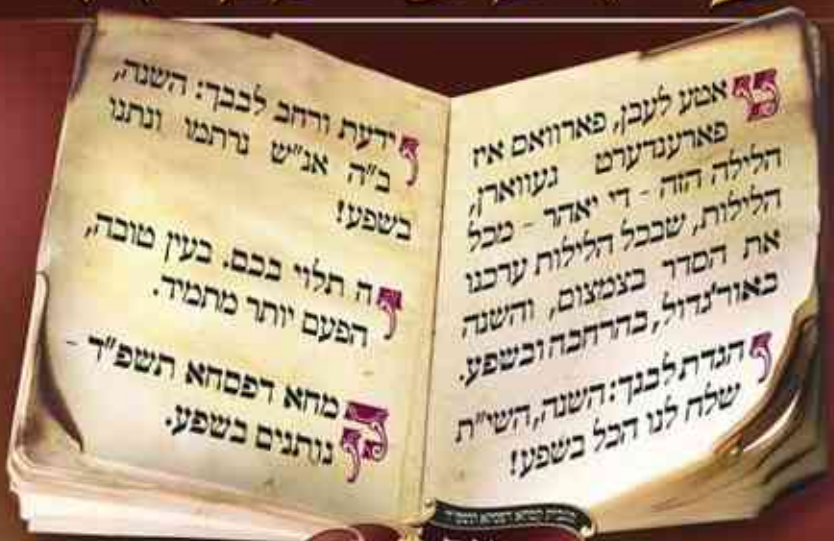 טאטע לעבן, פארוואס איז
פארענדערט געווארן,
הלילה הזה - די יאהר - מכל
הלילות, שבכל הלילות ערכנו
את הסדר בצמצום, והשנה
באור'גדול, בהרחבה ובשפע.
והגדת לבנך: השנה, השי"ת
שלח לנו הכל בשפע!
וידעת ורחב לבבך: השנה,
ב"ה אנ"ש נרתמו ונתנו
בשפע!
זה תלוי בכם. בעין טובה,
הפעם יותר מתמיד.
קמחא דפסחא תשפ"ד -
נותנים בשפע.